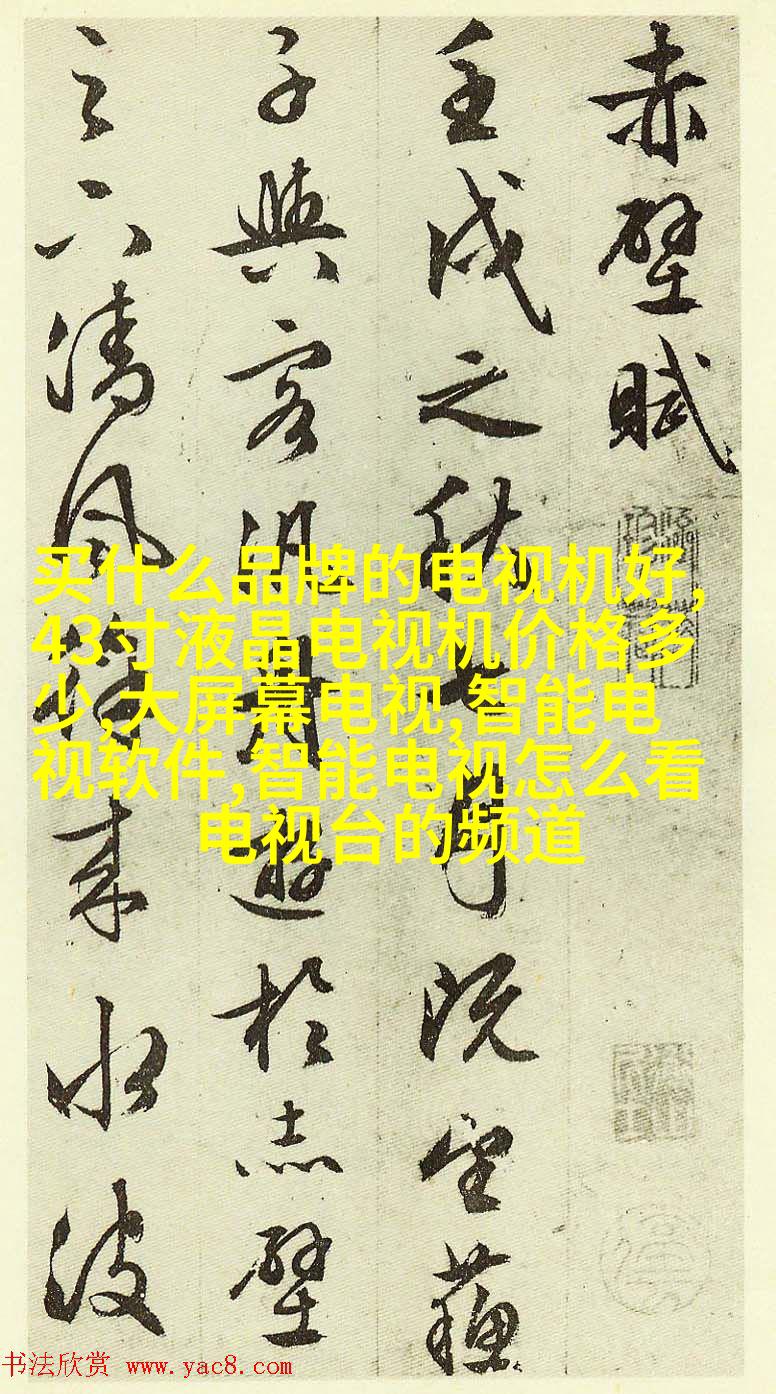 赤壁賦
壬戌之秋七月既望蘇
子與客汎舟遊於赤壁
之下清風徐來水波
买什么品牌的电视机好,
43寸液晶电视机价格多
少,大屏幕电视,智能电
视软件,智能电视怎么看
电视台的频道
书法欣赏 www.yac8.com